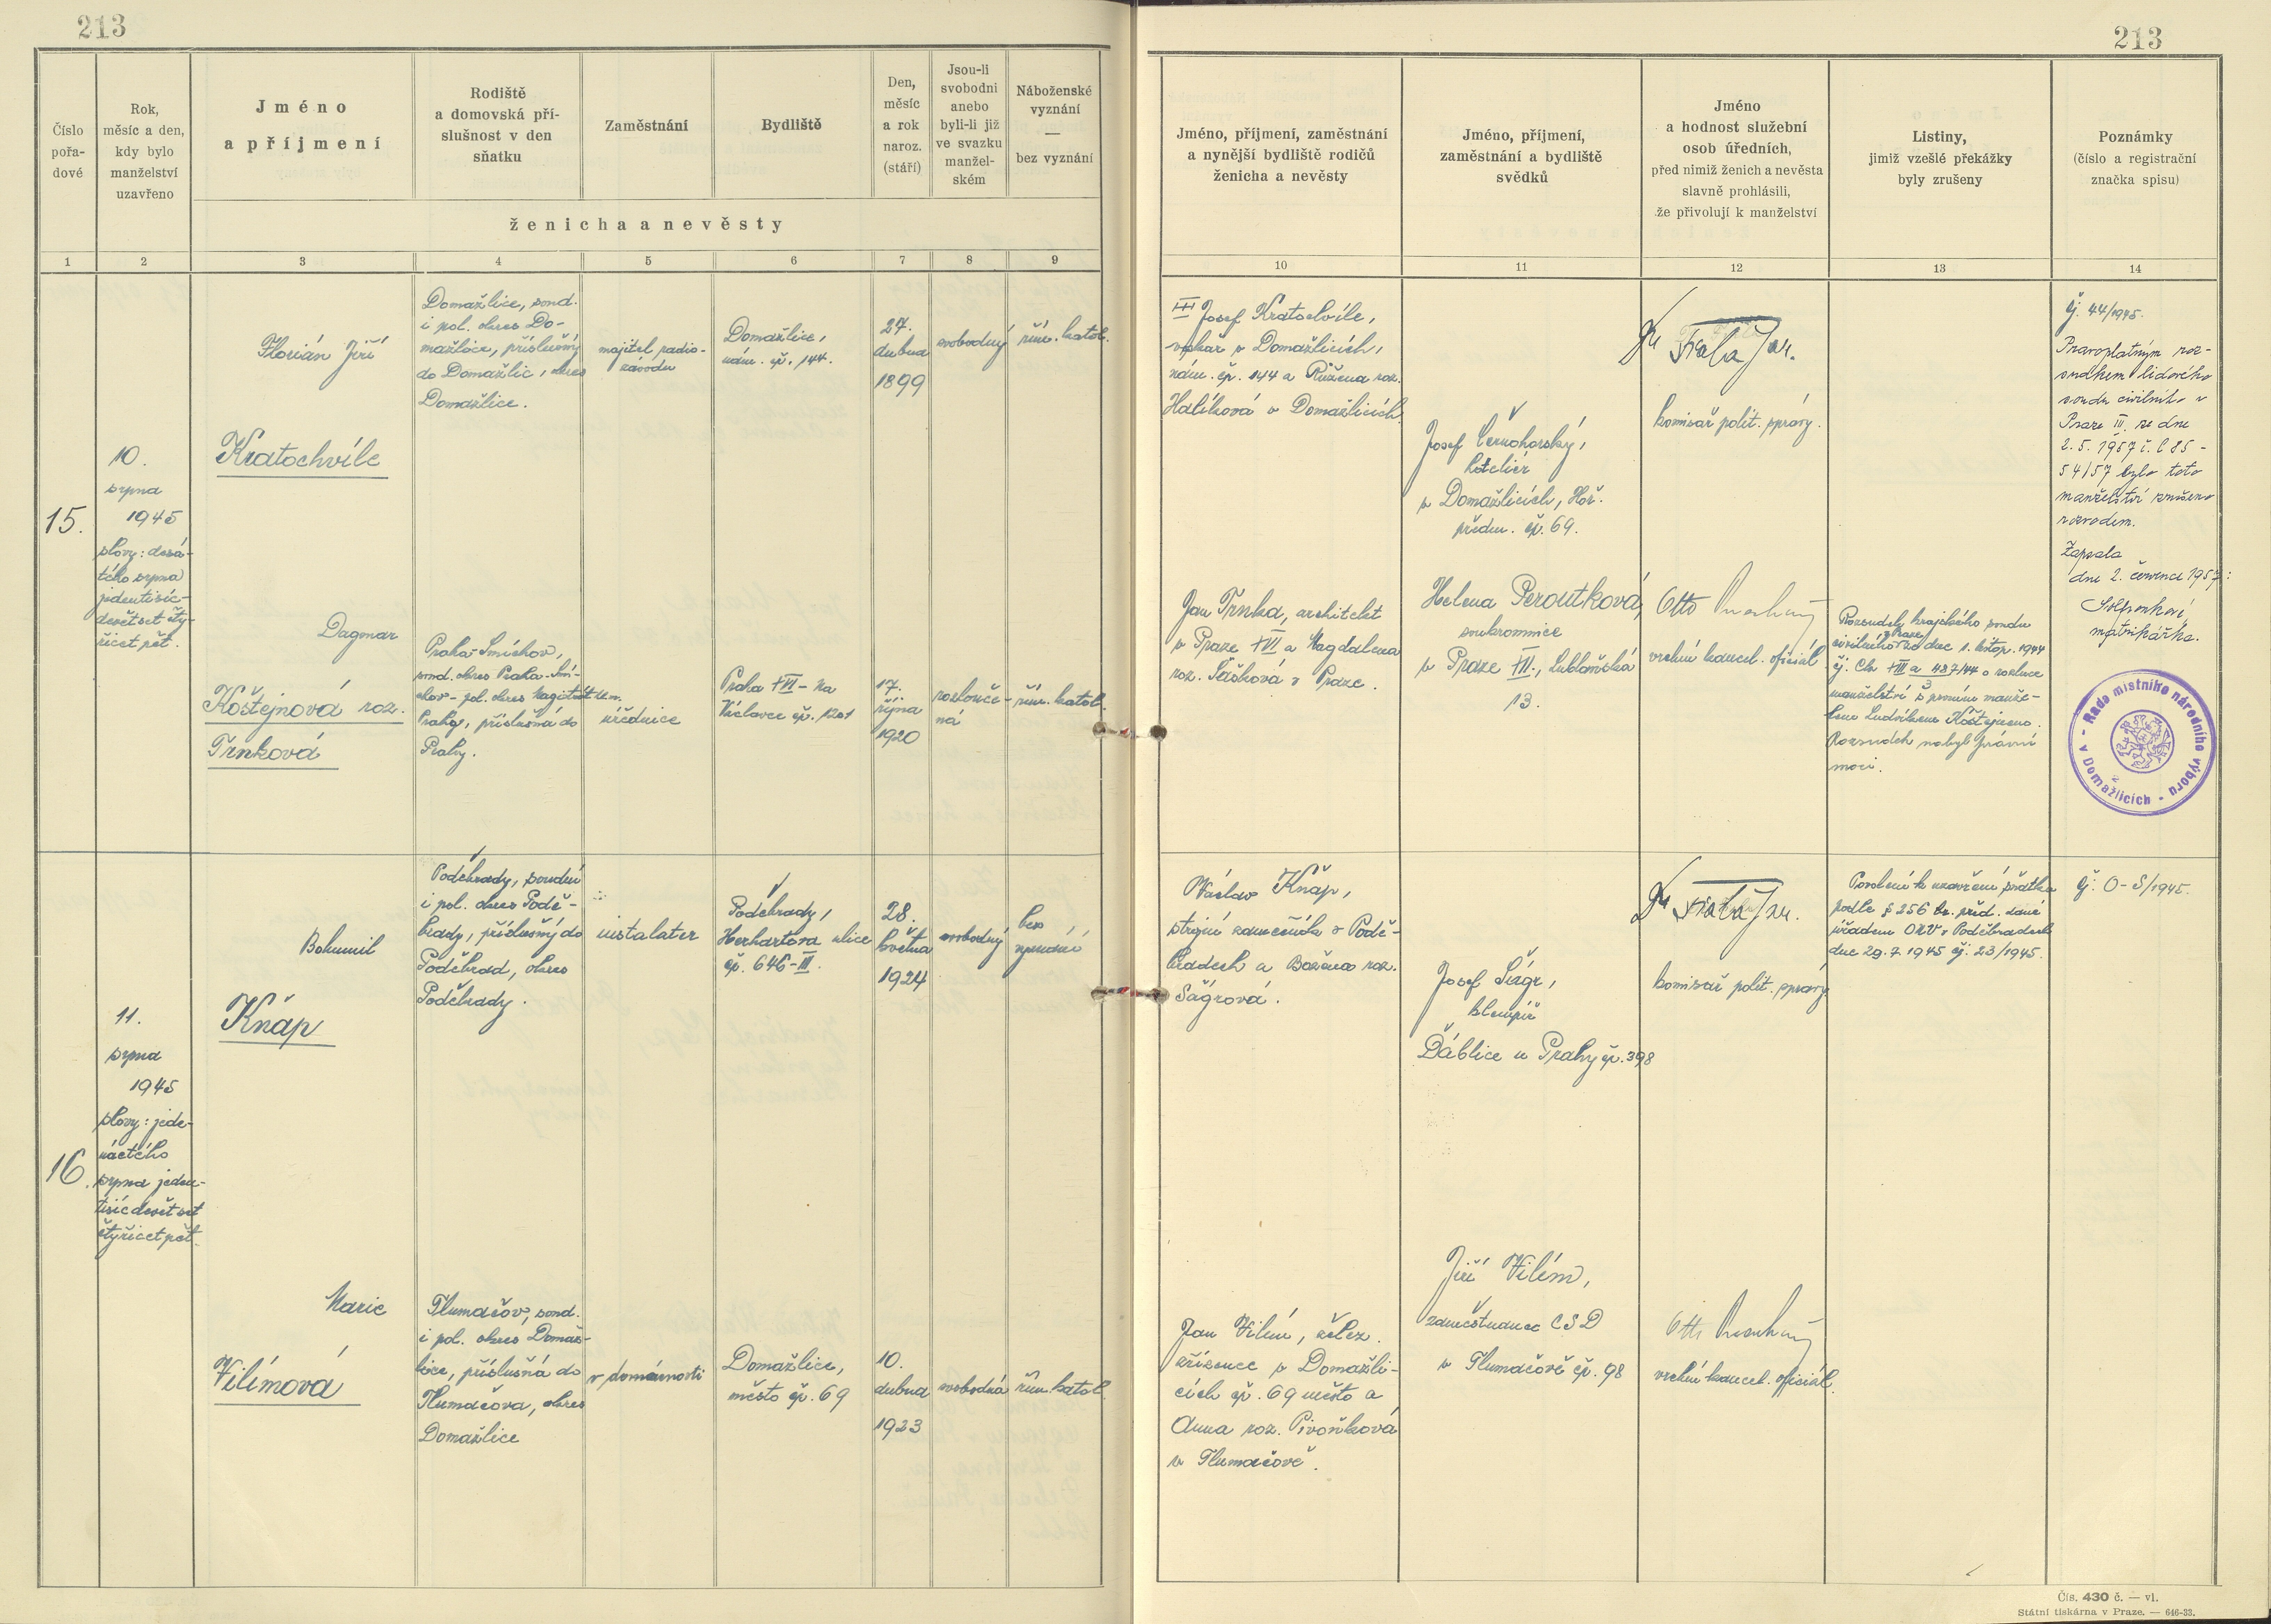 213
213
Číslo
pořa-
dové
Rok,
měsíc a den,
kdy bylo
manželství
uzavřeno
Jméno
a příjmení
Rodiště
a domovská pří-
slušnost v den
sňatku
Zaměstnání
Bydliště
Den,
měsíc
a rok
naroz.
(stáří)
Jsou-li
svobodni
anebo
byli-li již
ve svazku
manžel-
ském
Náboženské
vyznání
—
bez vyznání
ženicha a nevěsty
Jméno, příjmení, zaměstnání
a nynější bydliště rodičů
ženicha a nevěsty
Jméno, příjmení,
zaměstnání a bydliště
svědků
Jméno
a hodnost služební
osob úředních,
před nimiž ženich a nevěsta
slavně prohlásili,
že přivolují k manželství
Listiny,
jimiž vzešlé překážky
byly zrušeny
Poznámky
(číslo a registrační
značka spisu)
1 2 3 4 5 6 7 8 9 10 11 12 13 14
15.
10.
srpna
1945
slovy: desá-
tého srpna
jedentisíc-
devětset čty-
řicet pět.
Florián Jiří
Kratochvíle
Domažlice, soud.
i pol. okres Do-
mažlice, příslušný
do Domažlic, okres
Domažlice.
majitel radio-
závodu
Domažlice,
nám. čp. 144.
27.
dubna
1899
svobodný
řím. katol.
Josef Kratochvíle,
v Domažlicích,
nám. čp. 144 a Růžena roz.
Halíková v Domažlicích
Josef Černohorský,
hotelier
v Domažlicích, Hoř.
předm. čp. 69.
komisař polit. správy.
čj. 44/1945.
Pravoplatným roz-
sudkem lidového
soudu civilního v
Praze III. ze dne
2. 5. 1957 č.
54/57 bylo toto
manželství zrušeno
rozvodem.
Zapsala
dne 2. července 1957:
matrikářka.
Dagmar
Koštejnová roz.
Trnková
Praha-Smíchov,
soud. okres Praha-Smí-
chov - pol. okres Magistrát hl. m.
Prahy, příslušná do
Prahy.
úřednice
Praha XVI - Na
Václavce čp. 1201
17.
října
1920
rozlouče-
ná
řím. katol.
Jan Trnka, architekt
v Praze XVI a Magdalena
roz. Šašková v Praze.
Helena Peroutková,
soukromnice
v Praze XII., Lublaňská
13.
Otto
vrchní kancel. oficiál
Rozsudek krajského soudu
civilního v Praze ze dne 1. listop. 1944
čj. Ck XIII a 437/44 o rozluce
manželství s prvním manže-
lem Ludvíkem Koštejnem.
Rozsudek nabyl právní
moci.
Rada místního národního výboru - v Domažlicích -
16.
11.
srpna
1945
slovy: jede-
náctého
srpna jeden-
tisíc devět set
čtyřicet pět.
Bohumil
Knáp
Poděbrady, soudní
i pol. okres Podě-
brady, příslušný do
Poděbrad, okres
Poděbrady.
instalater
Poděbrady,
ulice
čp. 646-III.
28.
května
1924
svobodný
bez
vyznání
Václav Knáp,
strojní zámečník v Podě-
bradech a Božena roz.
Ságrová.
Josef Ságr,
klempíř
Ďáblice u Prahy čp. 398
komisař polit. správy
Povolení k uzavření sňatku
podle § 256 tr. před. dané
úřadem ONV v Poděbradech
dne 29.7.1945 čj. 23/1945.
čj. O-S/1945.
Marie
Vilímová
Tlumačov, soud.
i pol. okres Domaž-
lice, příslušná do
Tlumačova, okres
Domažlice
v domácnosti
Domažlice,
město čp. 69
10.
dubna
1923
svobodná
řím. katol.
Jan Vilím, želez.
zřízenec v Domažli-
cích čp. 69 město a
Anna roz. Pivoňková
v Tlumačově.
Jiří Vilím,
zaměstnanec ČSD
v Tlumačově čp. 98
Otto
vrchní kancel. oficiál.
Čís. 430 č. — vl.
Státní tiskárna v Praze. — 646-33.